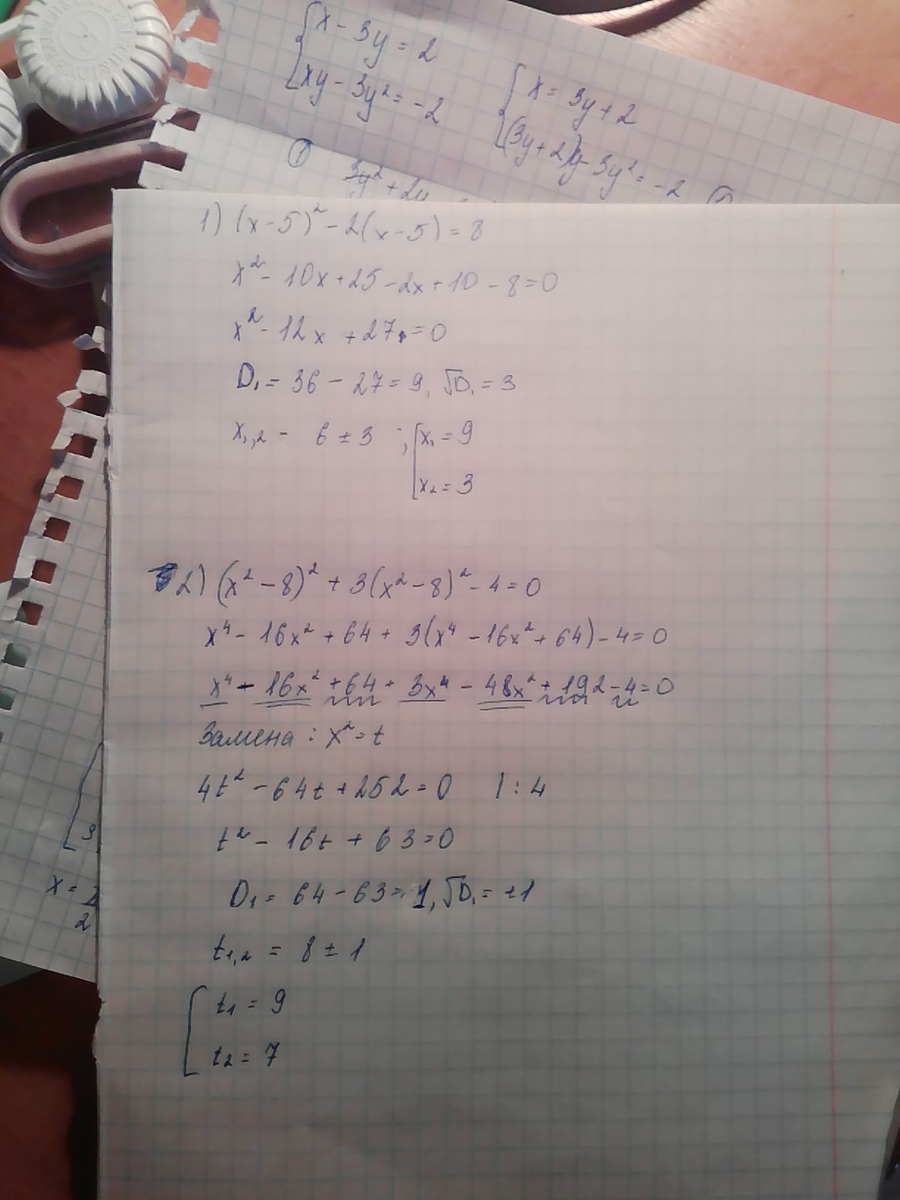 {x - 3y = 2
xy - 3y² = -2
{x = 3y + 2
(3y + 2)y - 3y² = -2
3y² + 2y
1) (x - 5)² - 2(x - 5) = 8
x² - 10x + 25 - 2x + 10 - 8 = 0
x² - 12x + 27 = 0
D₁ = 36 - 27 = 9, √D₁ = 3
x₁,₂ = 6 ± 3 ; [x₁ = 9
x₂ = 3
2) (x² - 8)² + 3(x² - 8)² - 4 = 0
x⁴ - 16x² + 64 + 3(x⁴ - 16x² + 64) - 4 = 0
x⁴ - 16x² + 64 + 3x⁴ - 48x² + 192 - 4 = 0
Замена : x² = t
4t² - 64t + 252 = 0 | : 4
t² - 16t + 63 = 0
D₁ = 64 - 63 = 1, √D₁ = ±1
t₁,₂ = 8 ± 1
[t₁ = 9
t₂ = 7
x =
2